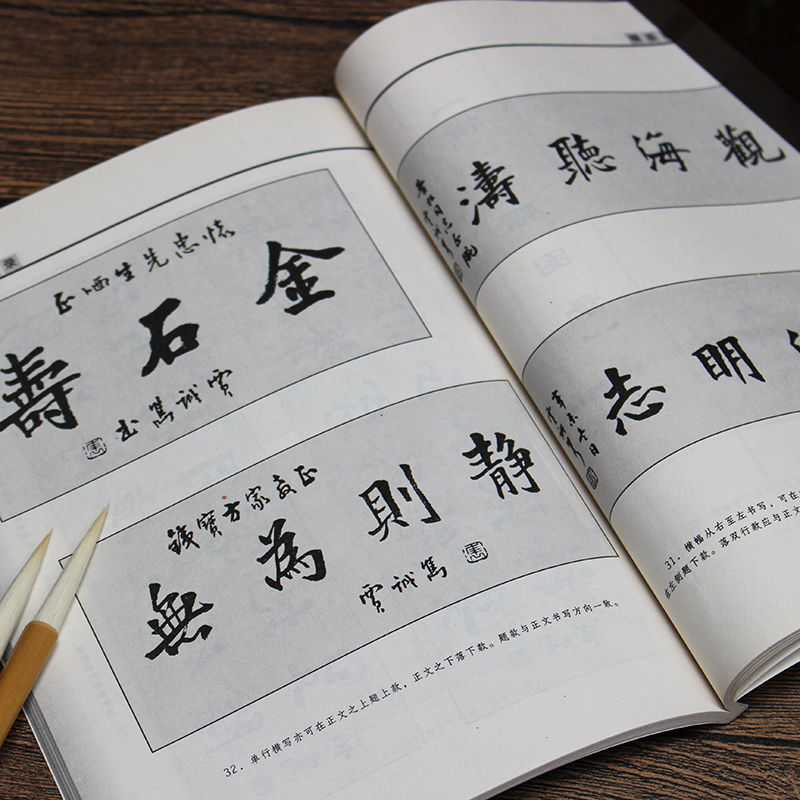 怀忠先生哂正
金石壽
贾诚笃书
寶方家教正
静則為無
贾诚笃
32. 单行横写亦可在正文之上题上款,正文之下落下款。题款与正文书写方向一致。
觀海聽濤
明志
31. 横幅从右至左书写,可在
在左侧题下款。落双行款应与正文